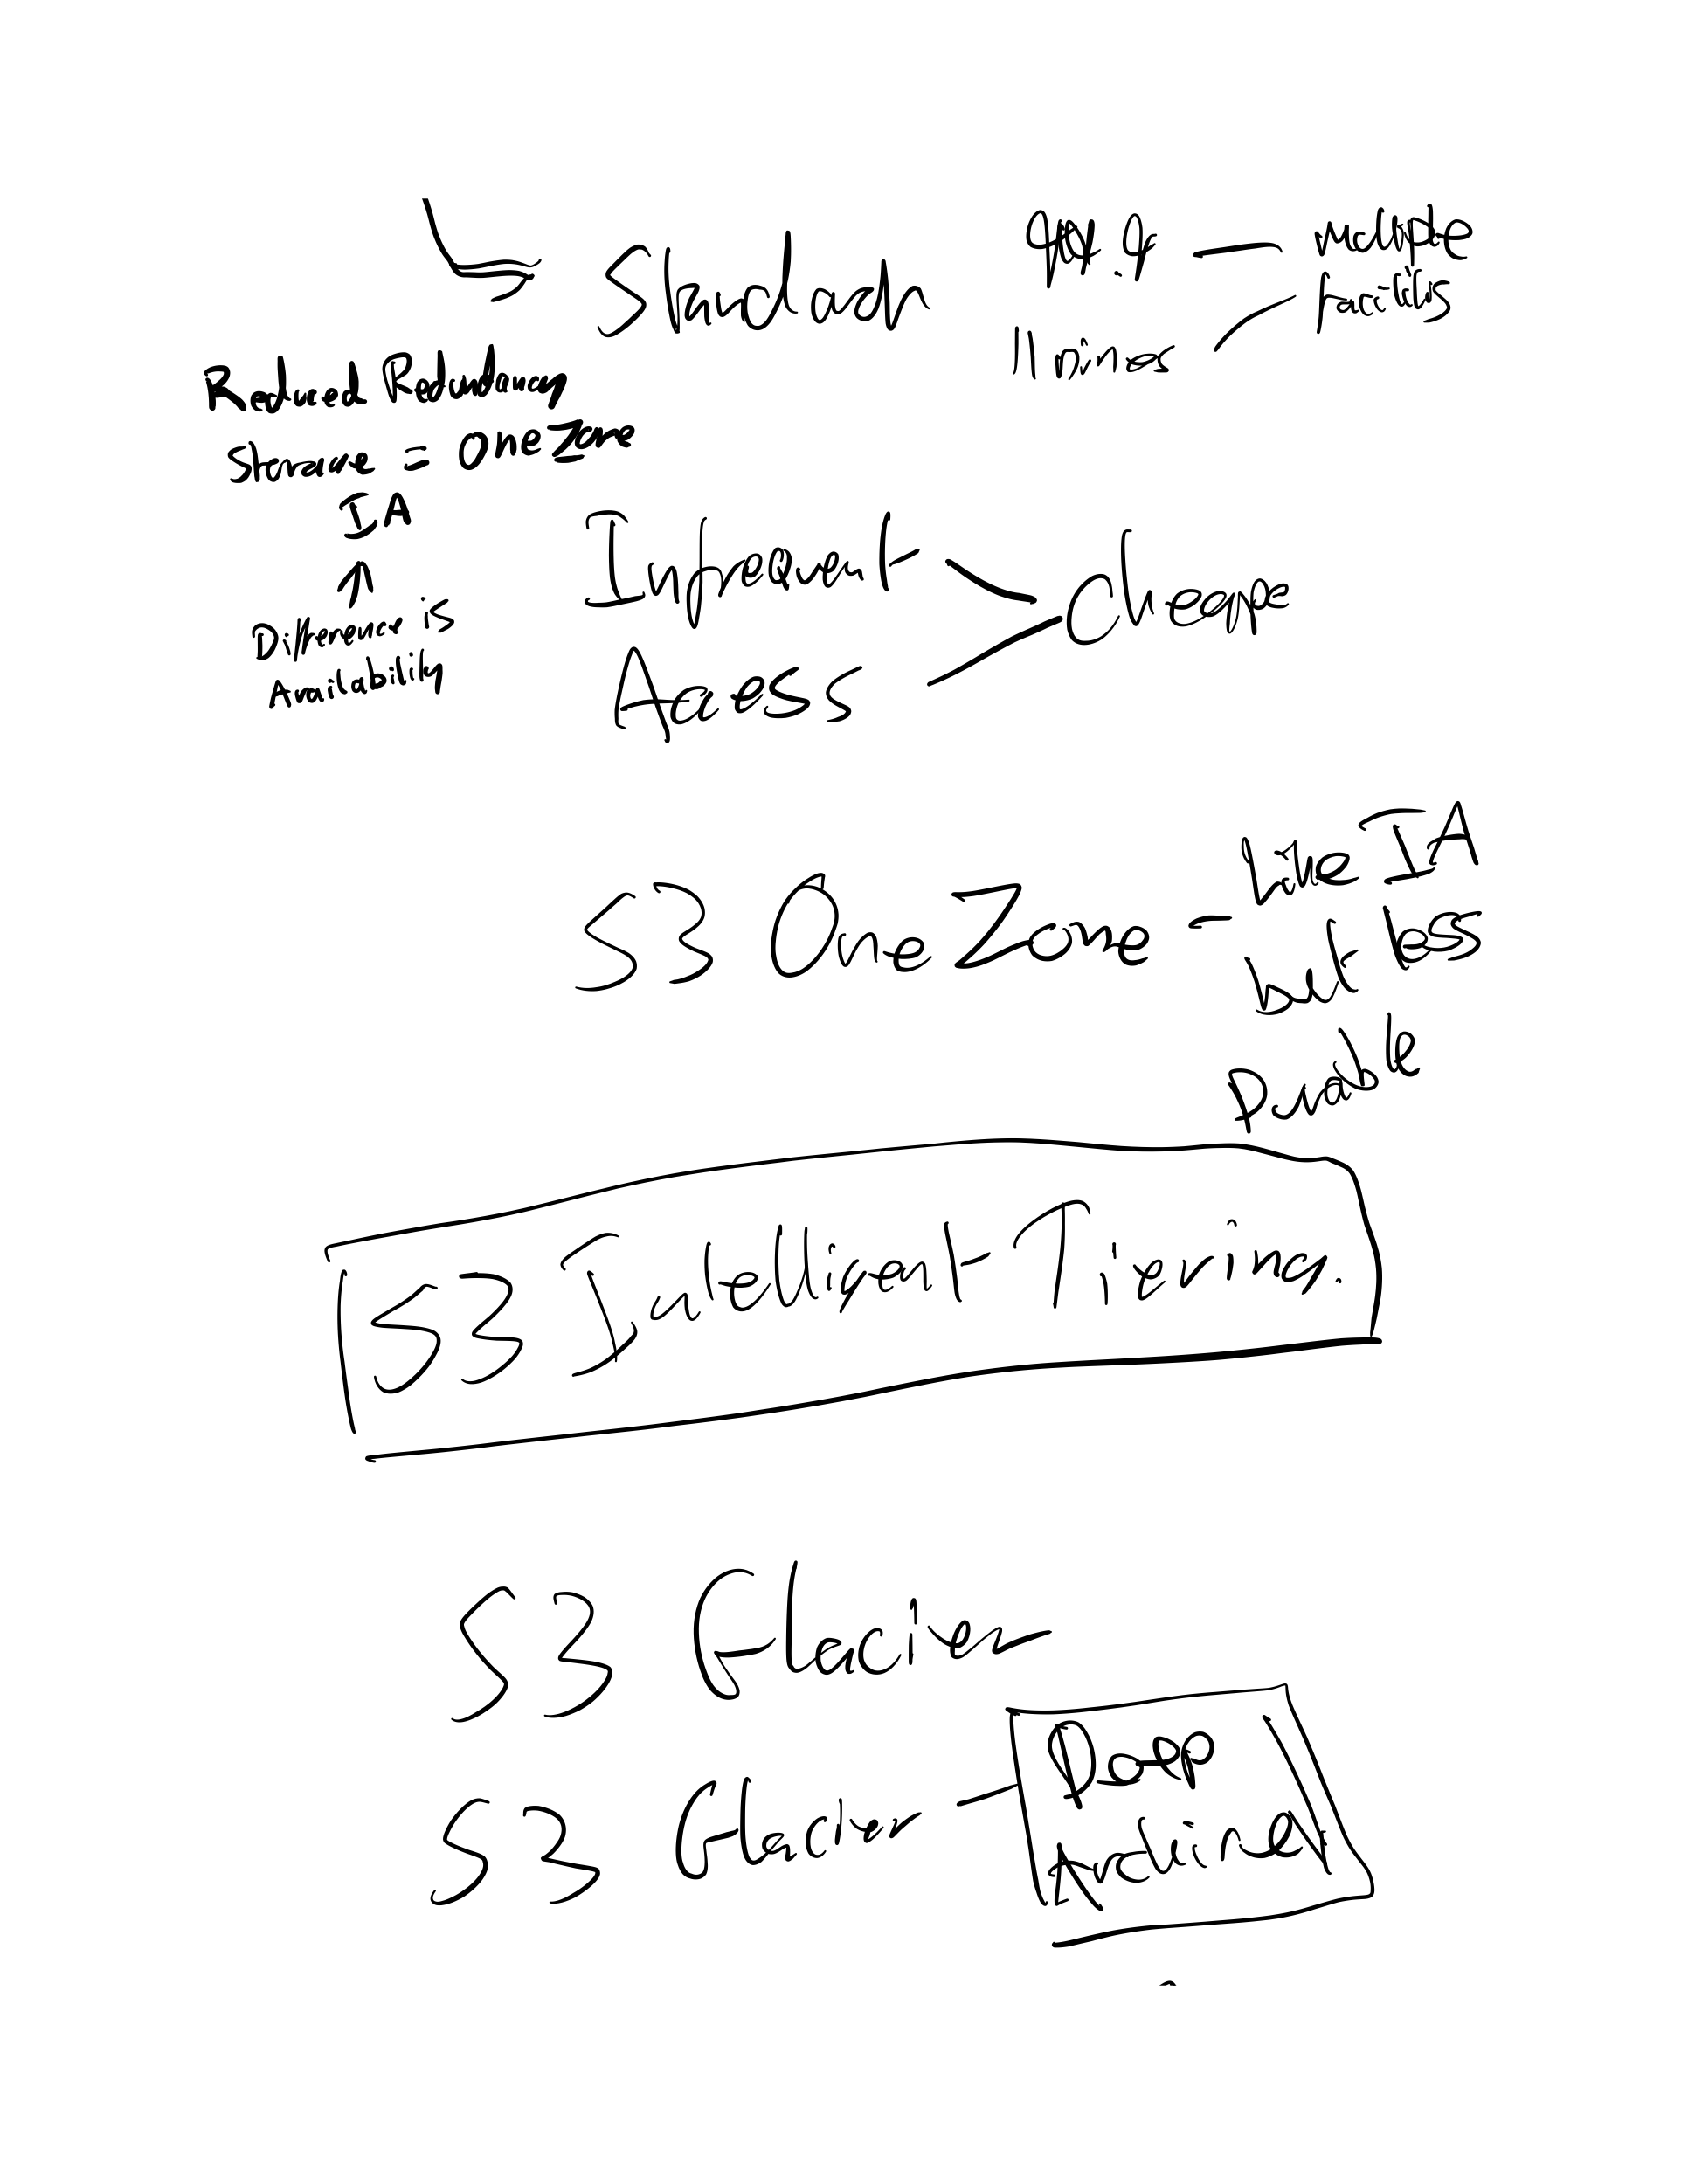 Standard
99.9 — multiple
11 nines facilities
Reduced Redundancy
Storage = One Zone
IA
Difference is
Availability
Infrequent
Access
Cheape
S3 One Zone - Like IA
but less
Durable
S3 Intelligent Tiering.
S3 Glacier
S3 Glacier - Deep
Archived